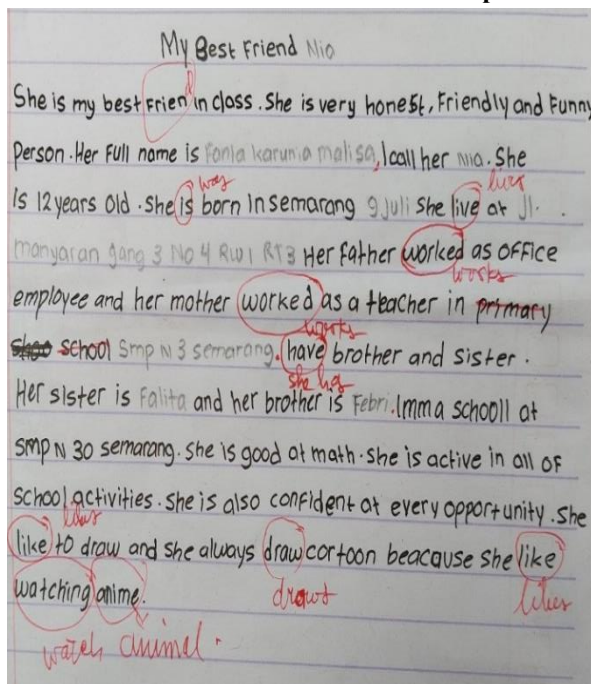 My Best Friend Nio
She is my best Frien d in class. She is very honest, Friendly and Funny
Person. Her Full name is Fania karunia malisa, I call her Nia. She
was lives
is 12 years old. She is born in semarang 9 juli she live at Jl.
manyaran gang 3 No 4 RW1 RT3 Her Father worked as office
works
employee and her mother worked as a teacher in primary
works
school Smp N 3 semarang. have brother and sister.
she has
Her sister is Falita and her brother is Febri. Imma schooll at
smp N 30 semarang. she is good at math. she is active in all of
school activities. she is also confident at every opportunity. She
likes
like to draw and she always draw cartoon beacause she like
watching anime. draws likes
watch animal.